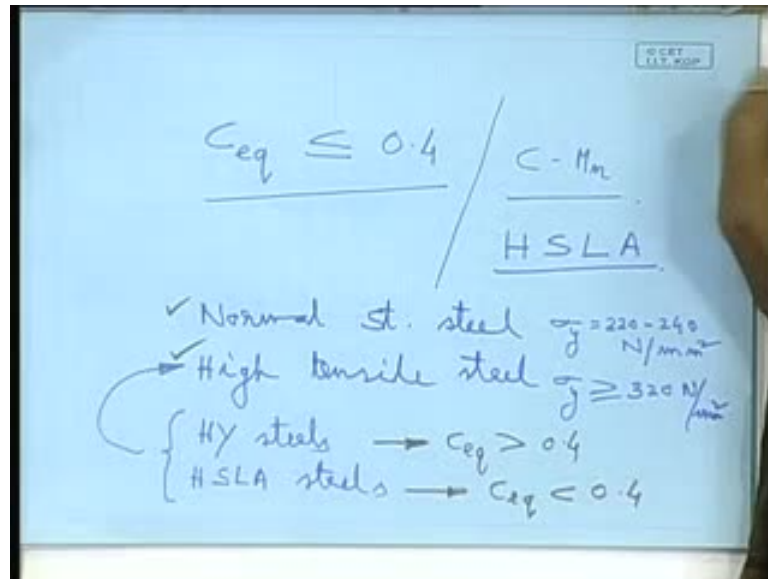 © CET
I.I.T. KGP
Ceq ≤ 0.4 / C - Mn
HSLA
✓ Normal St. steel σy = 220-240 N/mm²
✓ High tensile steel σy ≥ 320 N/mm²
HY steels → Ceq > 0.4
HSLA steels → Ceq < 0.4